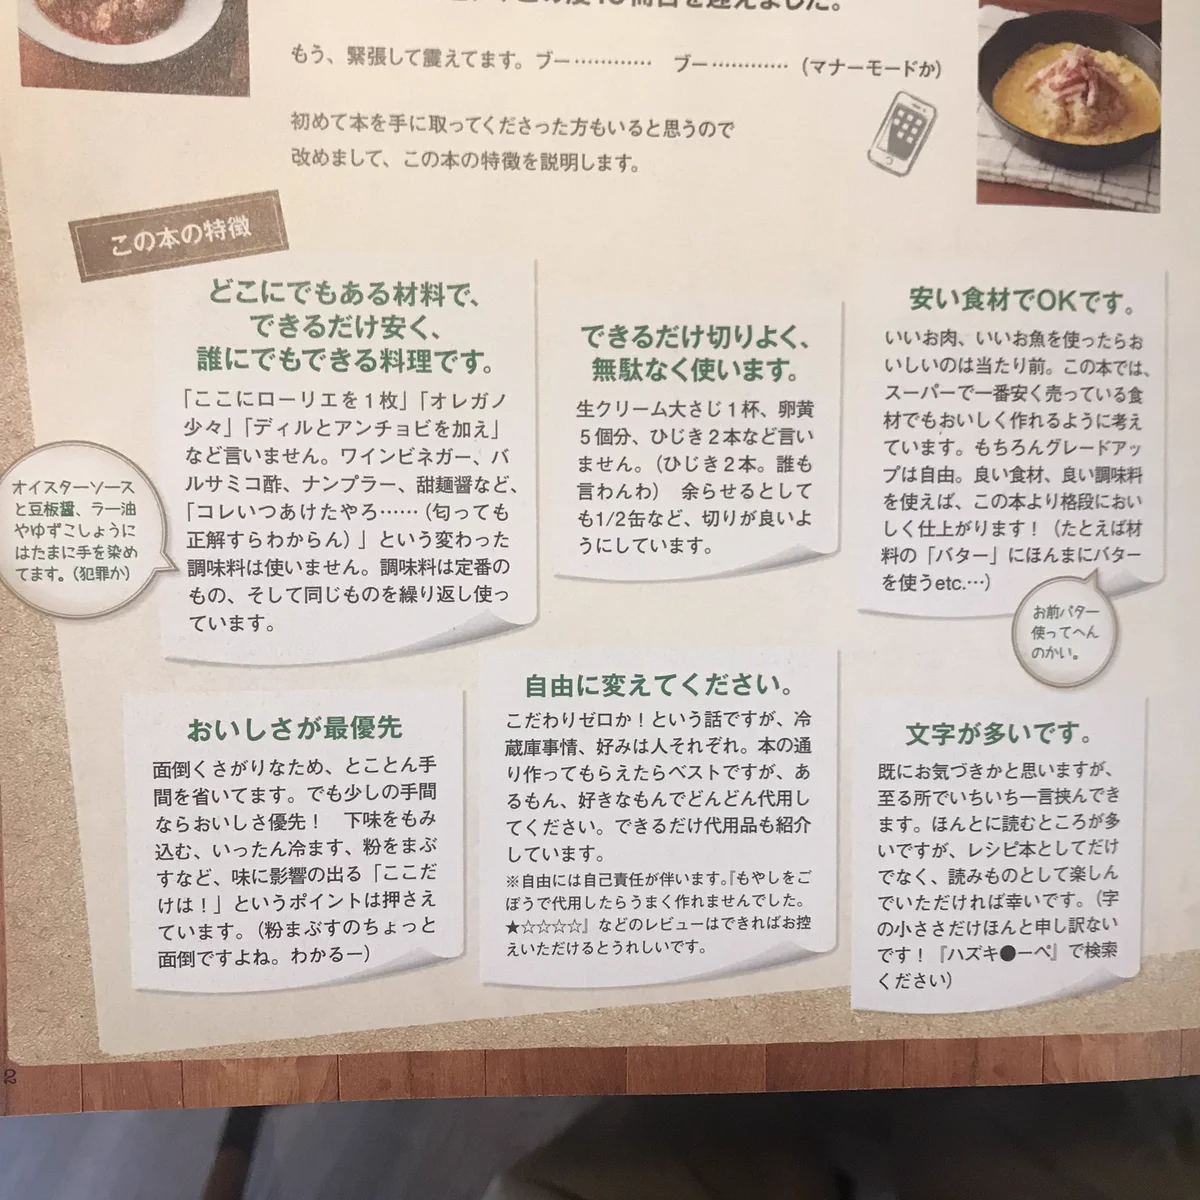 もう、緊張して震えてます。ブー………… ブー…………（マナーモードか）
初めて本を手に取ってくださった方もいると思うので
改めまして、この本の特徴を説明します。
この本の特徴
どこにでもある材料で、
できるだけ安く、
誰にでもできる料理です。
「ここにローリエを１枚」「オレガノ
少々」「ディルとアンチョビを加え」
など言いません。ワインビネガー、バ
ルサミコ酢、ナンプラー、甜麺醤など、
「コレいつあけたやろ……（匂っても
正解すらわからん）」という変わった
調味料は使いません。調味料は定番の
もの、そして同じものを繰り返し使っ
ています。
オイスターソース
と豆板醤、ラー油
やゆずこしょうに
はたまに手を染め
てます。（犯罪か）
できるだけ切りよく、
無駄なく使います。
生クリーム大さじ１杯、卵黄
５個分、ひじき２本など言い
ません。（ひじき２本。誰も
言わんわ） 余らせるとして
も1/2缶など、切りが良いよ
うにしています。
安い食材でOKです。
いいお肉、いいお魚を使ったらお
いしいのは当たり前。この本では、
スーパーで一番安く売っている食
材でもおいしく作れるように考え
ています。もちろんグレードアッ
プは自由。良い食材、良い調味料
を使えば、この本より格段におい
しく仕上がります！（たとえば材
料の「バター」にほんまにバター
を使うetc.…）
お前バター
使ってへん
のかい。
おいしさが最優先
面倒くさがりなため、とことん手
間を省いてます。でも少しの手間
ならおいしさ優先！ 下味をもみ
込む、いったん冷ます、粉をまぶ
すなど、味に影響の出る「ここだ
けは！」というポイントは押さえ
ています。（粉まぶすのちょっと
面倒ですよね。わかるー）
自由に変えてください。
こだわりゼロか！という話ですが、冷
蔵庫事情、好みは人それぞれ。本の通
り作ってもらえたらベストですが、あ
るもん、好きなもんでどんどん代用し
てください。できるだけ代用品も紹介
しています。
※自由には自己責任が伴います。『もやしをご
ぼうで代用したらうまく作れませんでした。
★☆☆☆☆』などのレビューはできればお控
えいただけるとうれしいです。
文字が多いです。
既にお気づきかと思いますが、
至る所でいちいち一言挟んでき
ます。ほんとに読むところが多
いですが、レシピ本としてだけ
でなく、読みものとして楽しん
でいただければ幸いです。（字
の小ささだけほんと申し訳ない
です！『ハズキ●ーペ』で検索
ください）
2